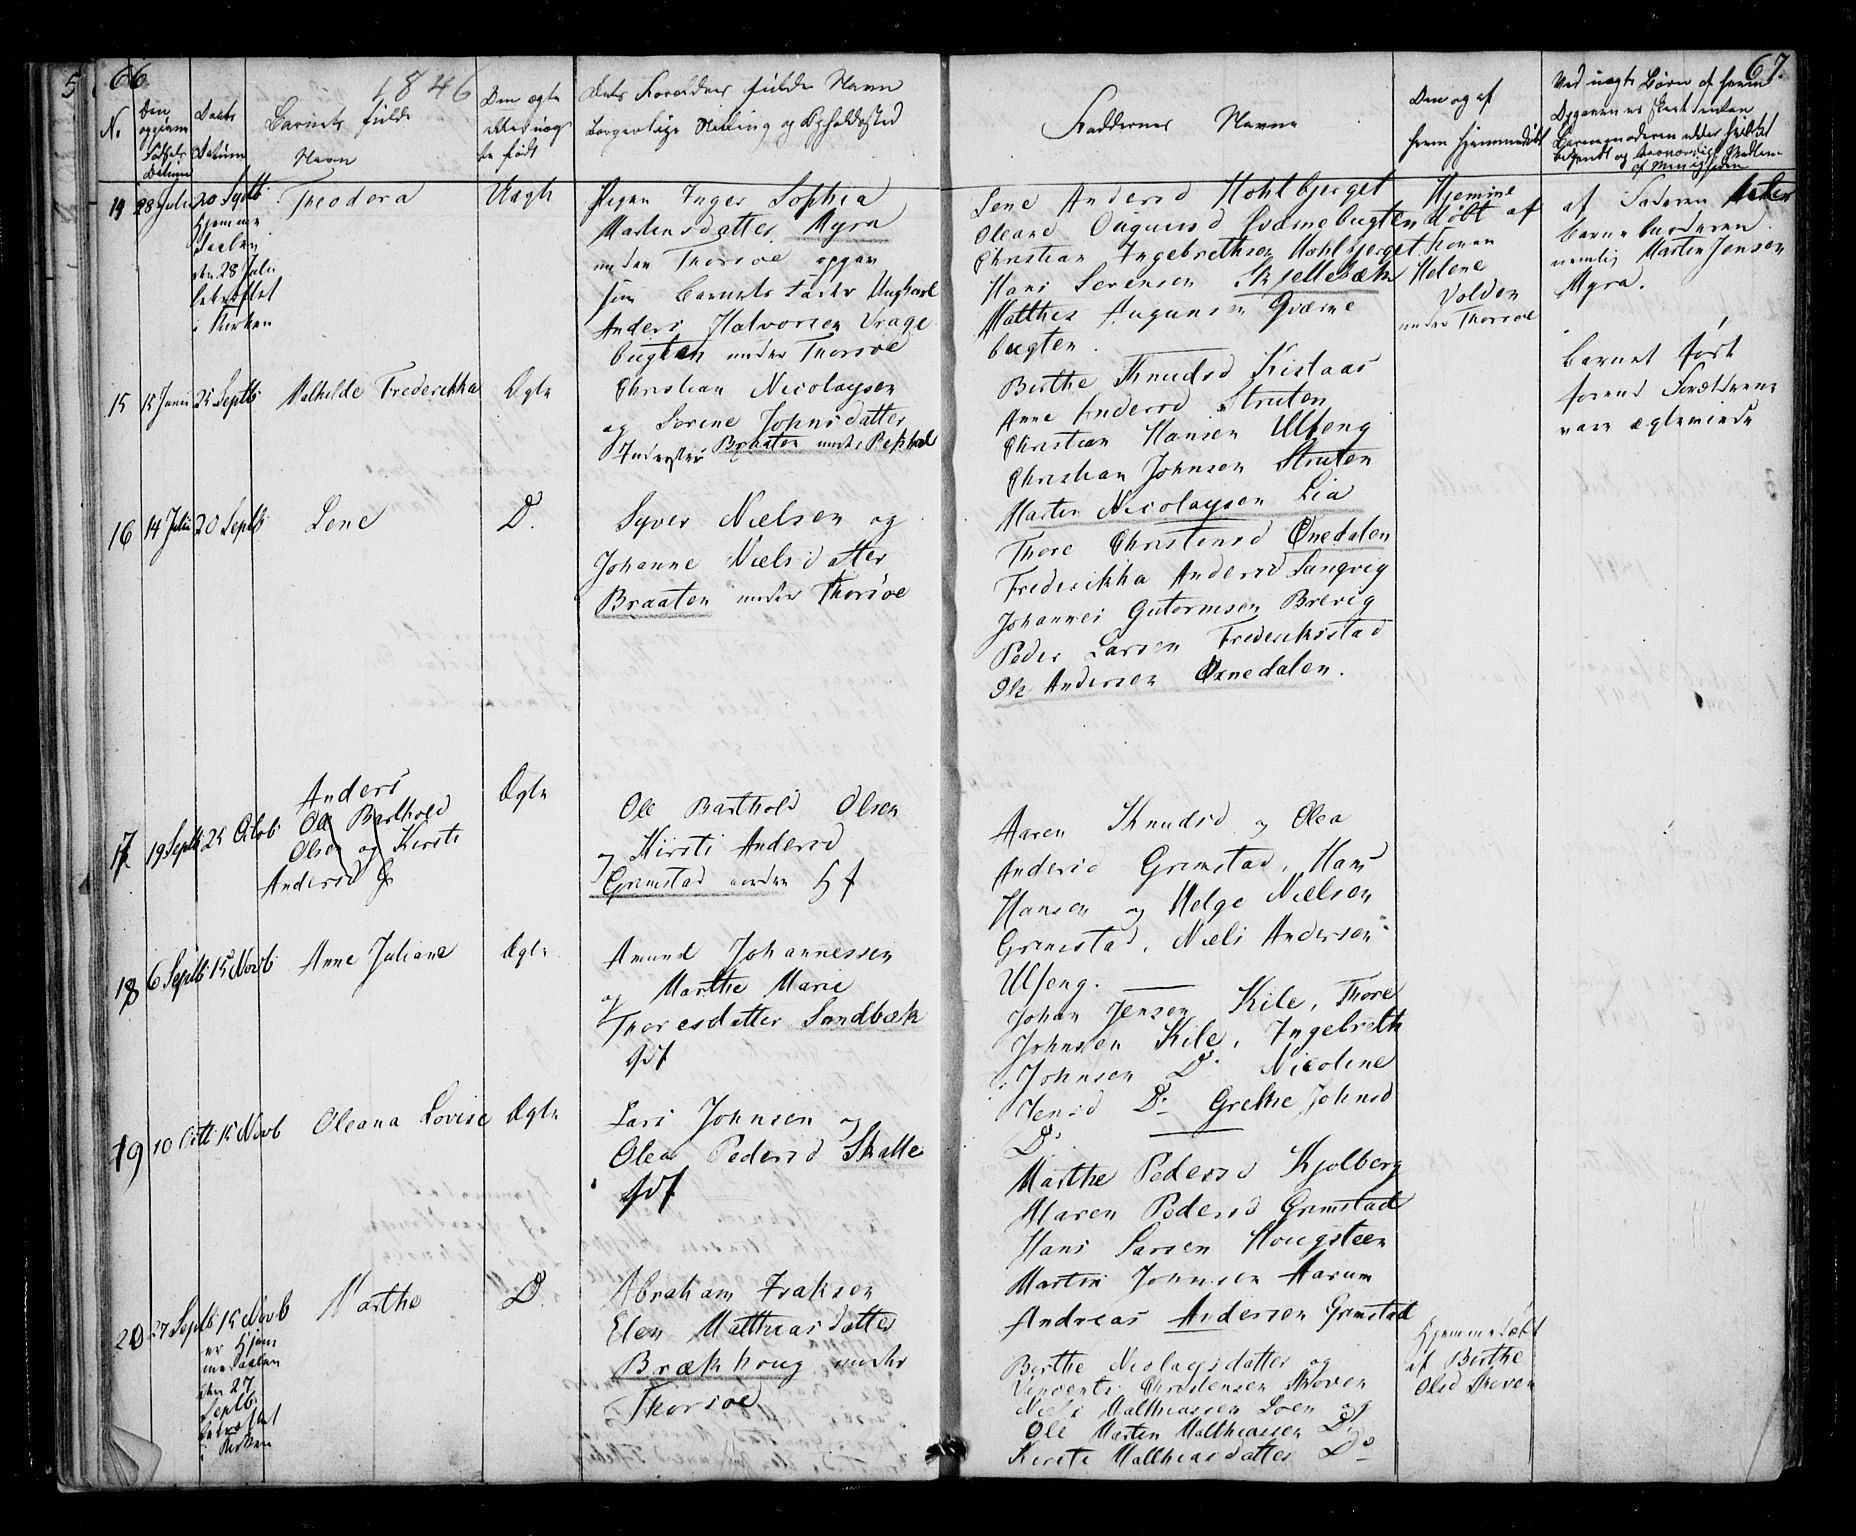 66
1846
67.
5
No
Den
Fødsels
Datum
Daabs
Datum
Barnets fulde
Navn
Den ægte
født
Dets Forældres fulde Navn
Borgerlige Stilling og Opholdssted
Faddernes Navne
Om og af
hvem hjemmedøbt
Ved uægte Børn af hvem
Barnemoderen
af Menigheden
14
28 Julii
20 Septb
Hjemme
den 28 Julii
i Kirken
Theodora
Uægte
Pigen Inger Sophia
Martinsdatter Myra
under Thorsøe
som Barnets Fader Ungkarl
Anders Halvorsen
bugten under Thorsøe
Lene Andersd Hohlbjerget
Oleane
Christian Ingebrethsen Hohlbjerget
Hans Sørensen Skjellebæk
Matthis
bugten.
Hjemme
døbt af
Konen
Helene
Volden
under Thorsøe
af Faderen
nemlig Martin Jensen
Myra.
15
15 Junii
25 Septb
Mathilde Frederikka
Ægte
Christian Nicolaysen
og Sørine Johnsdatter
Inderster Braaten under
Berthe Knudsd Kistaas
Anne Andersd Struten
Christian Hansen Ulfeng
Christian Johnsen Struten
Martin Nicolaysen Lia
Barnet født
førend Forældrene
vare ægteviede
16
14 Julii
20 Septb
Lene
D.
Syver Nielsen og
Johanne Nielsdatter
Braaten under Thorsøe
Thore Christensd Oxnedalen
Frederikka Andersd
Johannes Gutormsen Brevig
Peder Larsen Frederiksstad
Ole Andersen Oxnedalen.
17
19 Septb
25 Octob
Anders
Ole Barthold
Olsen og Kirsti
Andersd G
Ægte
Ole Barthold Olsen
og Kirsti Andersd
Grimstad
Maren Knudsd og Olea
Andersd Grimstad, Hans
Hansen og Helge Nielsen
Grimstad, Niels Andersen
Ulfeng.
18
6 Septb
15 Novb
Anne Juliane
Ægte
Amund Johannessen
og Marthe Marie
Thoresdatter Sandbæk
Johan Jensen Kile, Thore
Johnsen Kile, Ingebreth
Johnsen Do Nicoline
Jensd Do Grethe Johnsd
Do
19
10 Octb
15 Novb
Oleana Lovise
Ægte
Lars Johnsen og
Olea Pedersd Skatte
Marthe Pedersd Kjølberg
Maren Pedersd Grimstad
Hans Larsen Hougsteen
Martin Johnsen Aarum
Andreas Andersen Grimstad
20
27 Septb
15 Novb
er Hjem
den 27
Septb
i Kirken
Marthe
D.
Abraham Isaksen
Elen Matthiasdatter
Brækhoug under
Thorsøe
Berthe Nicolaysdatter og
Christensen Skoven
Niels Matthiassen Loen og
Ole Martin Matthiassen Do
Kirsti Matthiasdatter Do
Hjemmedøbt
af Berthe
Olsd Skoven